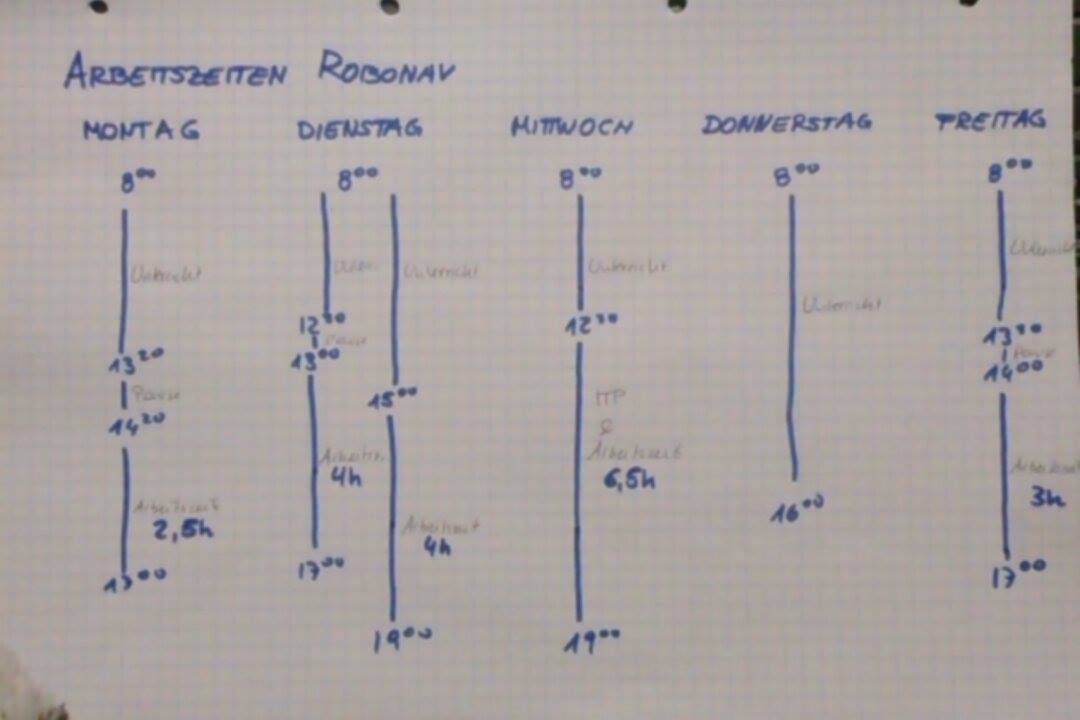 ARBEITSZEITEN ROBONAV
MONTAG
8⁰⁰
Unterricht
13²⁰
Pause
14²⁰
Arbeitszeit
2,5h
17⁰⁰
DIENSTAG
8⁰⁰
12³⁰
Pause
13⁰⁰
4h
17⁰⁰
Unterricht
15⁰⁰
Arbeitszeit
4h
19⁰⁰
MITTWOCH
8⁰⁰
Unterricht
12³⁰
ITP
&
Arbeitszeit
6,5h
19⁰⁰
DONNERSTAG
8⁰⁰
Unterricht
16⁰⁰
FREITAG
8⁰⁰
Unterricht
13²⁰
Pause
14⁰⁰
Arbeitszeit
3h
17⁰⁰